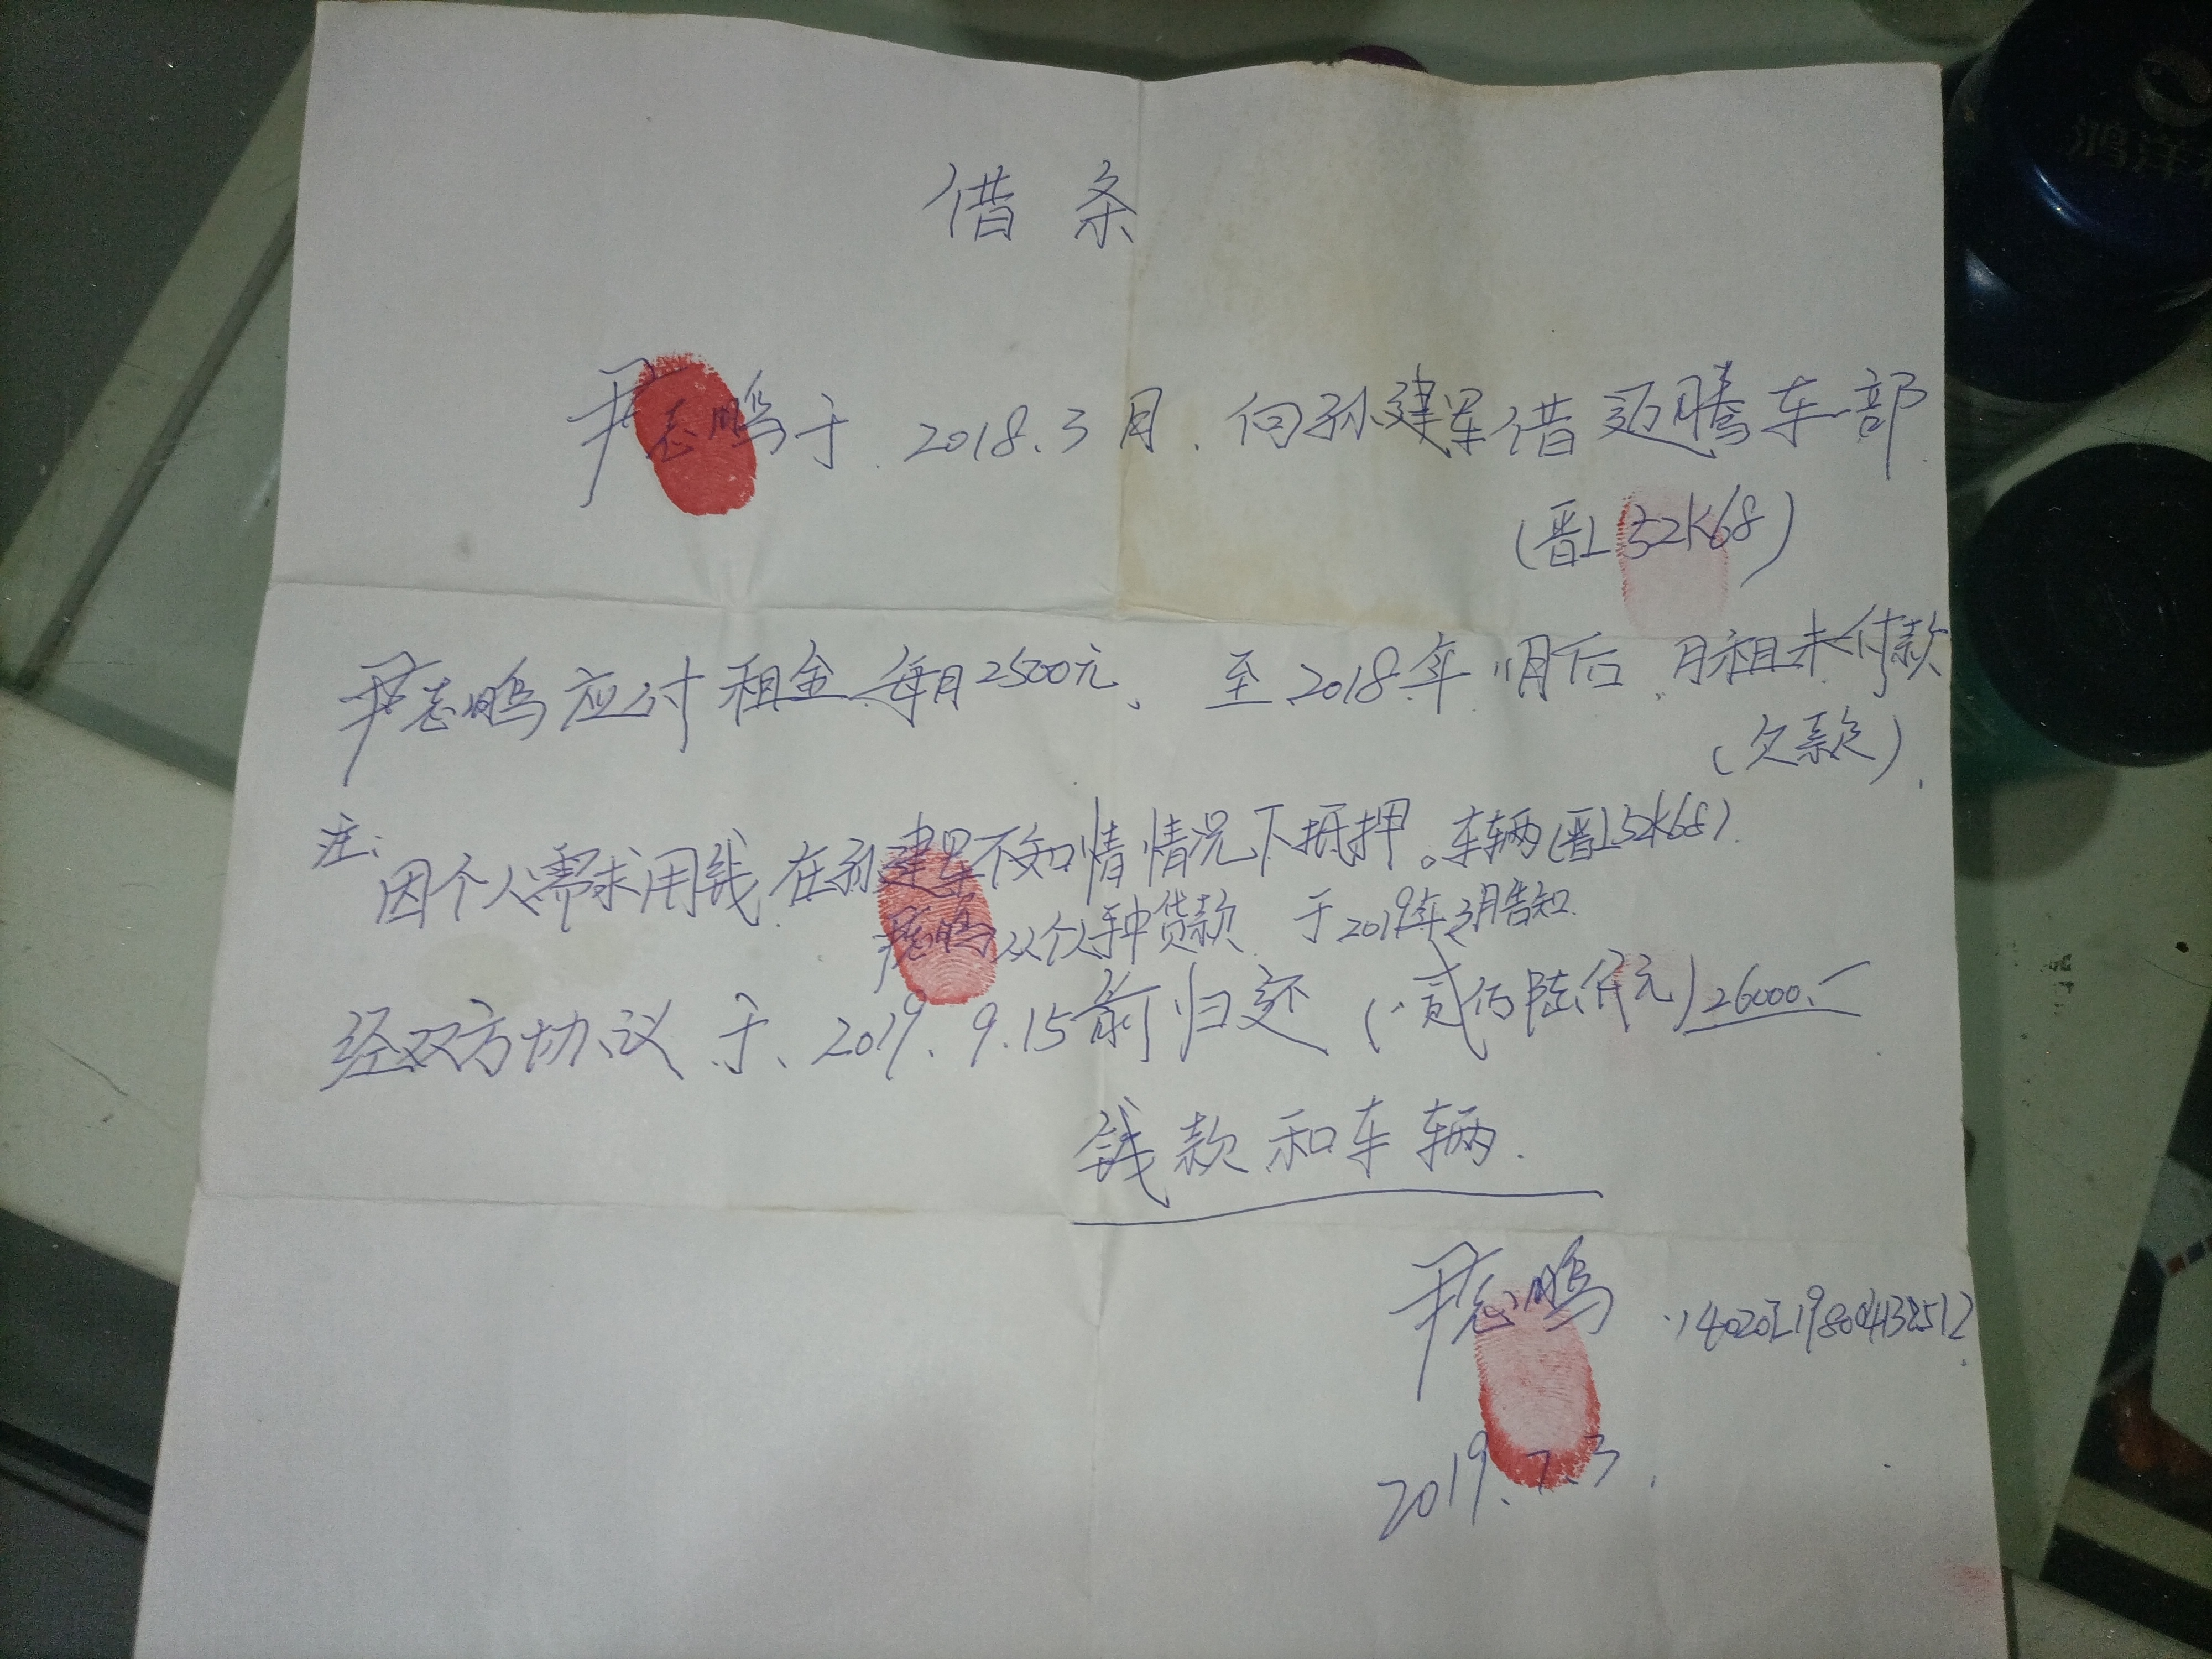 借条
尹志鹏于.2018.3月.向孙建军借迈腾车一部.
(晋L52K68)
尹志鹏应付租金每月2500元、至2018年11月后.月租未付款
(欠款).
注:
因个人需求用钱在孙建军不知情情况下抵押。车辆(晋L52K68).
尹志鹏从个人手中贷款.于2019年3月告知.
经双方协议于、2019.9.15前归还(贰佰陆仟元)26000.
钱款和车辆.
尹志鹏
2019.7.3.
鸿洋